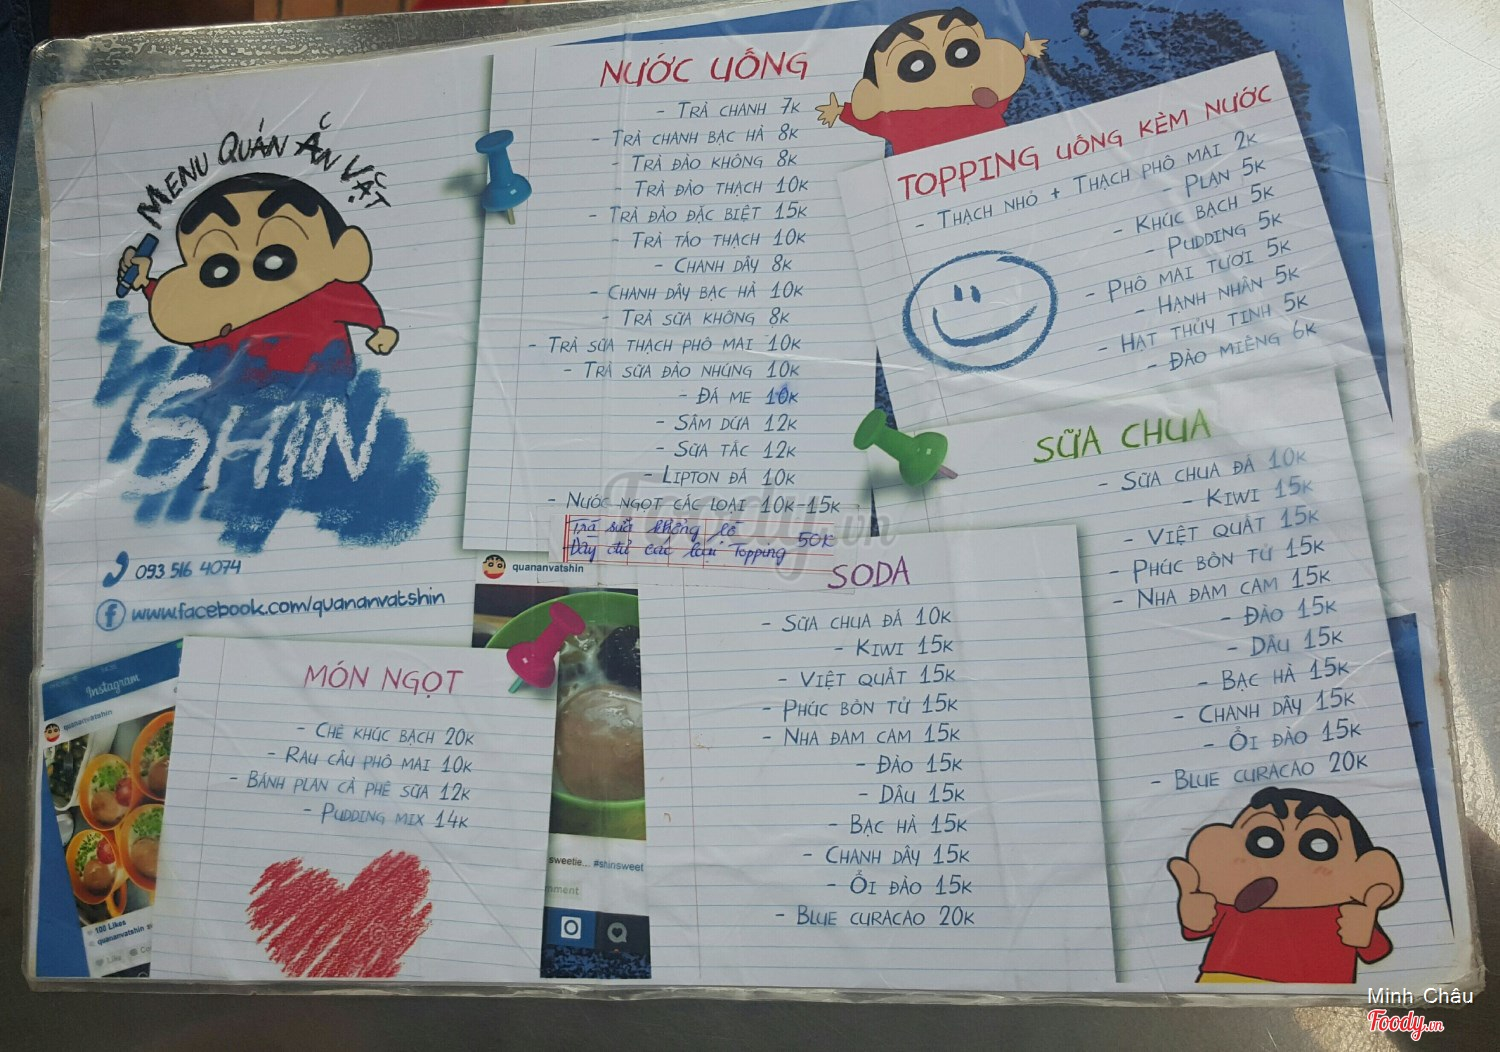 MENU QUÁN ĂN VẶT
SHIN
093 516 4074
www.facebook.com/quananvatshin
NƯỚC UỐNG
- TRÀ CHANH 7K
- TRÀ CHANH BẠC HÀ 8K
- TRÀ ĐÀO KHÔNG 8K
- TRÀ ĐÀO THẠCH 10K
- TRÀ ĐÀO ĐẶC BIỆT 15K
- TRÀ TÁO THẠCH 10K
- CHANH DÂY 8K
- CHANH DÂY BẠC HÀ 10K
- TRÀ SỮA KHÔNG 8K
- TRÀ SỮA THẠCH PHÔ MAI 10K
- TRÀ SỮA ĐÀO NHÚNG 10K
- ĐÁ ME 10K
- SÂM DỨA 12K
- SỮA TẮC 12K
- LIPTON ĐÁ 10K
- NƯỚC NGỌT CÁC LOẠI 10K-15K
Trà sữa khổng lồ
Đầy đủ các loại Topping 50K
TOPPING UỐNG KÈM NƯỚC
- THẠCH NHỎ + THẠCH PHÔ MAI 2K
- PLAN 5K
- KHÚC BẠCH 5K
- PUDDING 5K
- PHÔ MAI TƯƠI 5K
- HẠNH NHÂN 5K
- HẠT THỦY TINH 5K
- ĐÀO MIẾNG 6K
SỮA CHUA
- SỮA CHUA ĐÁ 10K
- KIWI 15K
- VIỆT QUẤT 15K
- PHÚC BỒN TỬ 15K
- NHA ĐAM CAM 15K
- ĐÀO 15K
- DÂU 15K
- BẠC HÀ 15K
- CHANH DÂY 15K
- ỔI ĐÀO 15K
- BLUE CURACAO 20K
SODA
- SỮA CHUA ĐÁ 10K
- KIWI 15K
- VIỆT QUẤT 15K
- PHÚC BỒN TỬ 15K
- NHA ĐAM CAM 15K
- ĐÀO 15K
- DÂU 15K
- BẠC HÀ 15K
- CHANH DÂY 15K
- ỔI ĐÀO 15K
- BLUE CURACAO 20K
MÓN NGỌT
- CHÈ KHÚC BẠCH 20K
- RAU CÂU PHÔ MAI 10K
- BÁNH PLAN CÀ PHÊ SỮA 12K
- PUDDING MIX 14K
Instagram
quananvatshin
100 Likes
quananvatshin
Like
quananvatshin
sweetie... #shinsweet
mment
Foody.vn
Minh Châu
Foody.vn